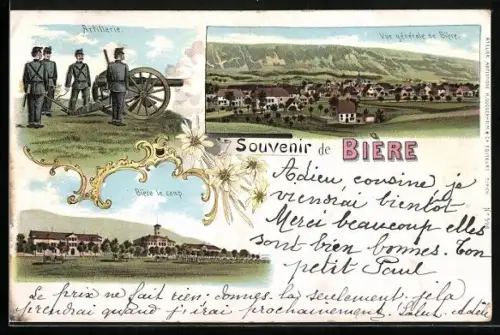 Artillerie.
Vue générale de Bière.
Souvenir de BIÈRE
Bière le camp
Adieu, cousine, je
viendrai bientôt
Merci beaucoup elles
sont bien bonnes. Ton
petit Paul
Le prix ne fait rien; donnes-la seulement; je la
prendrai quand j'irai prochainement. Salut. Adieu